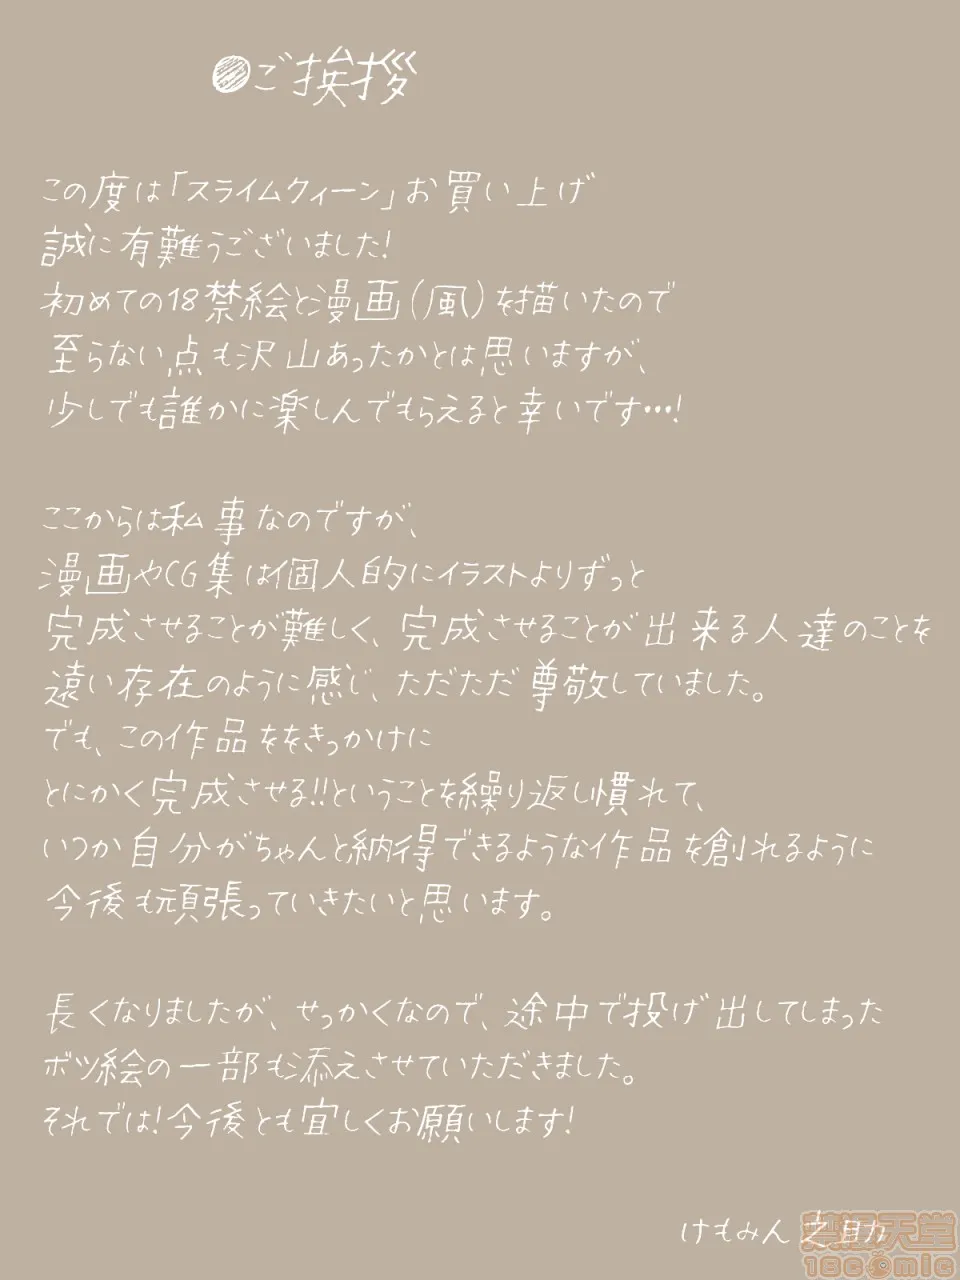 ●ご挨拶
この度は「スライムクィーン」お買い上げ
誠に有難うございました!
初めての18禁絵と漫画(風)を描いたので
至らない点も沢山あったかとは思いますが、
少しでも誰かに楽しんでもらえると幸いです…!
ここからは私事なのですが、
漫画やCG集は個人的にイラストよりずっと
完成させることが難しく、完成させることが出来る人達のことを
遠い存在のように感じ、ただただ尊敬していました。
でも、この作品ををきっかけに
とにかく完成させる!!ということを繰り返し慣れて、
いつか自分がちゃんと納得できるような作品を創れるように
今後も頑張っていきたいと思います。
長くなりましたが、せっかくなので、途中で投げ出してしまった
ボツ絵の一部も添えさせていただきました。
それでは!今後とも宜しくお願いします!
けもみん之助
禁漫天堂
18comic